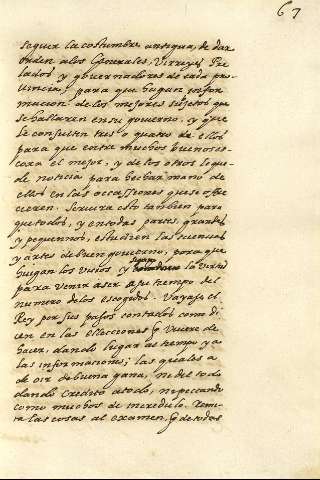 67
seguir la costumbre antigua, de dar
orden a los Generales, Virreyes, Pre
lados, y governadores de cada pro
vincia, para que hagan infor
macion de los mejores sujetos que
se hallaren en su govierno, y que
se consulten tres o quatro de ellos
para que entre muchos buenos es
coxa el mejor, y de los otros le que
de noticia para hechar mano de
ellos en las occassiones que se offre
cieren. Servira esto tambien para
que todos, y en todas partes, grandes
y pequennos, estudien las sciencias
y artes de buen govierno, para que
huigan los vicios y sigan la virtud
para venir a ser a su tiempo del
numero de los escogidos. Vayase el
Rey por sus pasos contados como di
cen en las ellecciones q̃ huviere de
hacer, dando lugar al tiempo y a
las informaciones; las quales a
de oir de buena gana, ni del todo
dando credito a todo, ni peccando
como muchos de incredulo. Remi
ta las cosas al examen, q̃ de todas